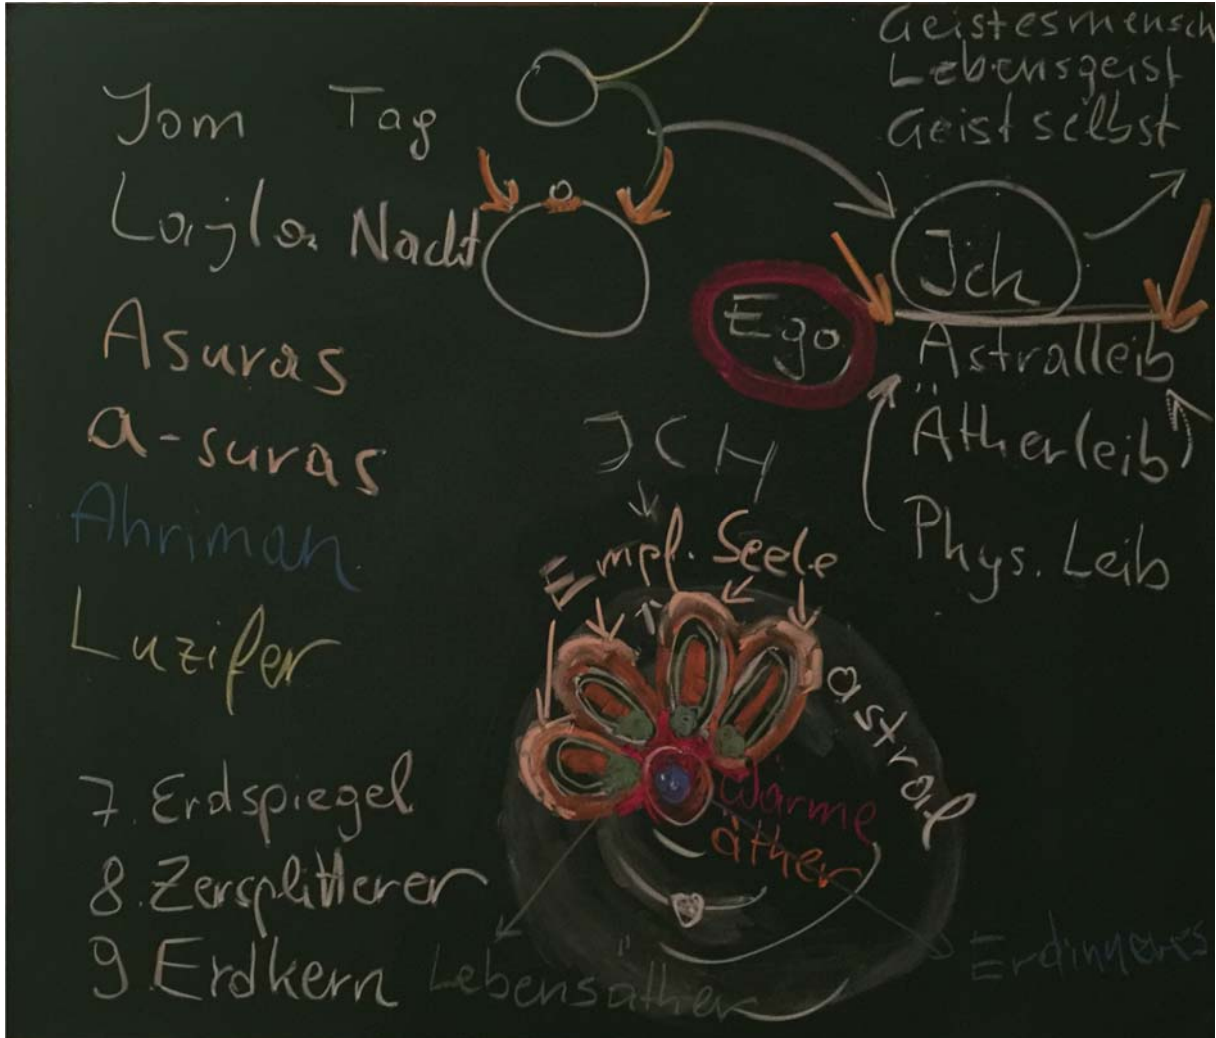 Jom Tag
Lajla Nacht
Asuras
a-suras
Ahriman
Luzifer
7. Erdspiegel
8. Zersplitterer
9. Erdkern
Geistesmensch
Lebensgeist
Geistselbst
Ich
Ego
Astralleib
Ätherleib
Phys. Leib
ICH
Empf. Seele
astral
Wärme
äther
Lebensäther
Erdinneres